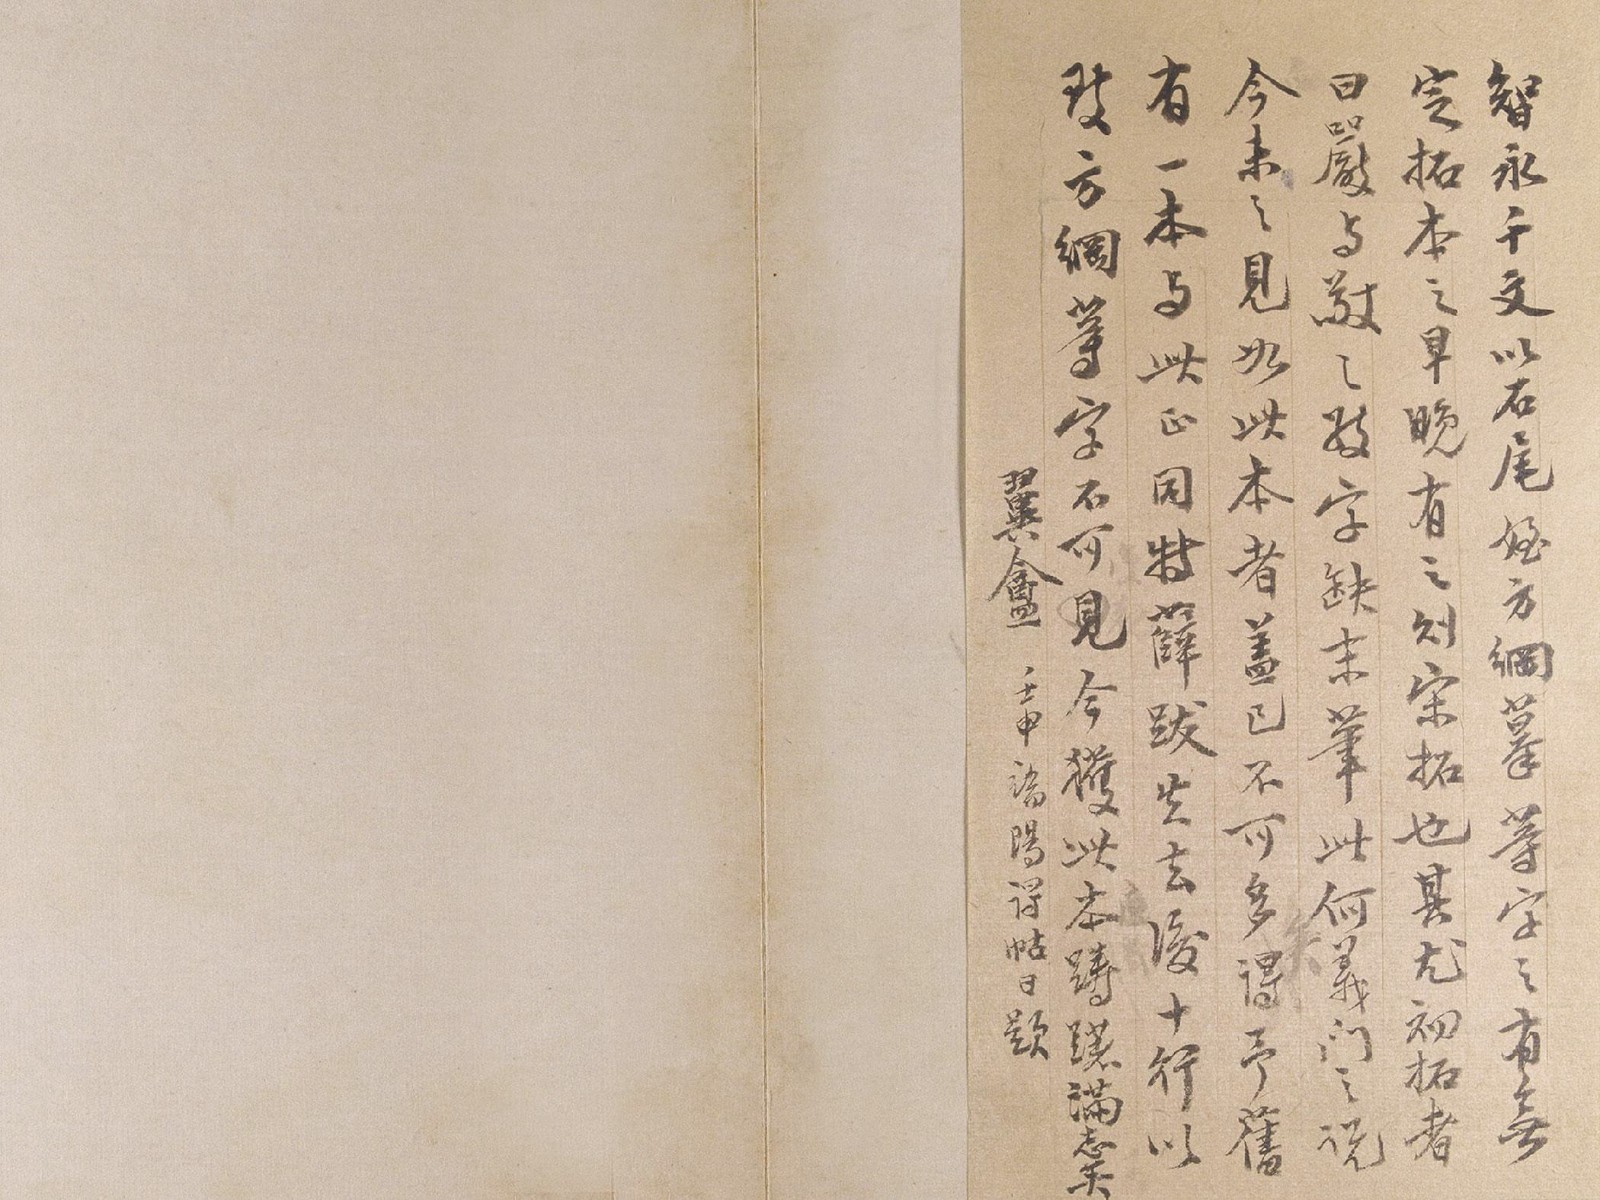 智永千文以石尾姪方綱摹等字之有無
定拓本之早晚有之則宋拓也其尤初拓者
曰嚴与敬之數字缺末筆此何義門之説
今未之見如此本者蓋已不可多得予舊
有一本与此正同特薛跋失去後十行以
致方綱等字不可見今獲此本躊躇滿志矣
翼盦 壬申端陽得帖日題